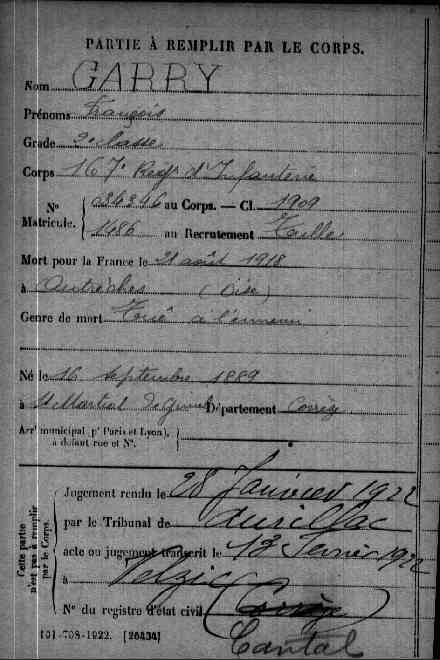 PARTIE À REMPLIR PAR LE CORPS.
Nom GARRY
Prénoms François
Grade 2e classe
Corps 167e Régt d'Infanterie
Nº Matricule. 34346 au Corps. — Cl. 1909
1486 au Recrutement Tulle
Mort pour la France le 21 août 1918
à Autrêches (Oise)
Genre de mort Tué à l'ennemi
Né le 16 septembre 1889
à St Martial Département Corrèze
Arrt municipal (pr Paris et Lyon),
à défaut rue et Nº.
Cette partie n'est pas à remplir par le Corps.
Jugement rendu le 28 Janvier 1922
par le Tribunal de Aurillac
acte ou jugement transcrit le 13 Février 1922
à Velzic
Nº du registre d'état civil (Corrèze)
Cantal
101-708-1922. [26434]